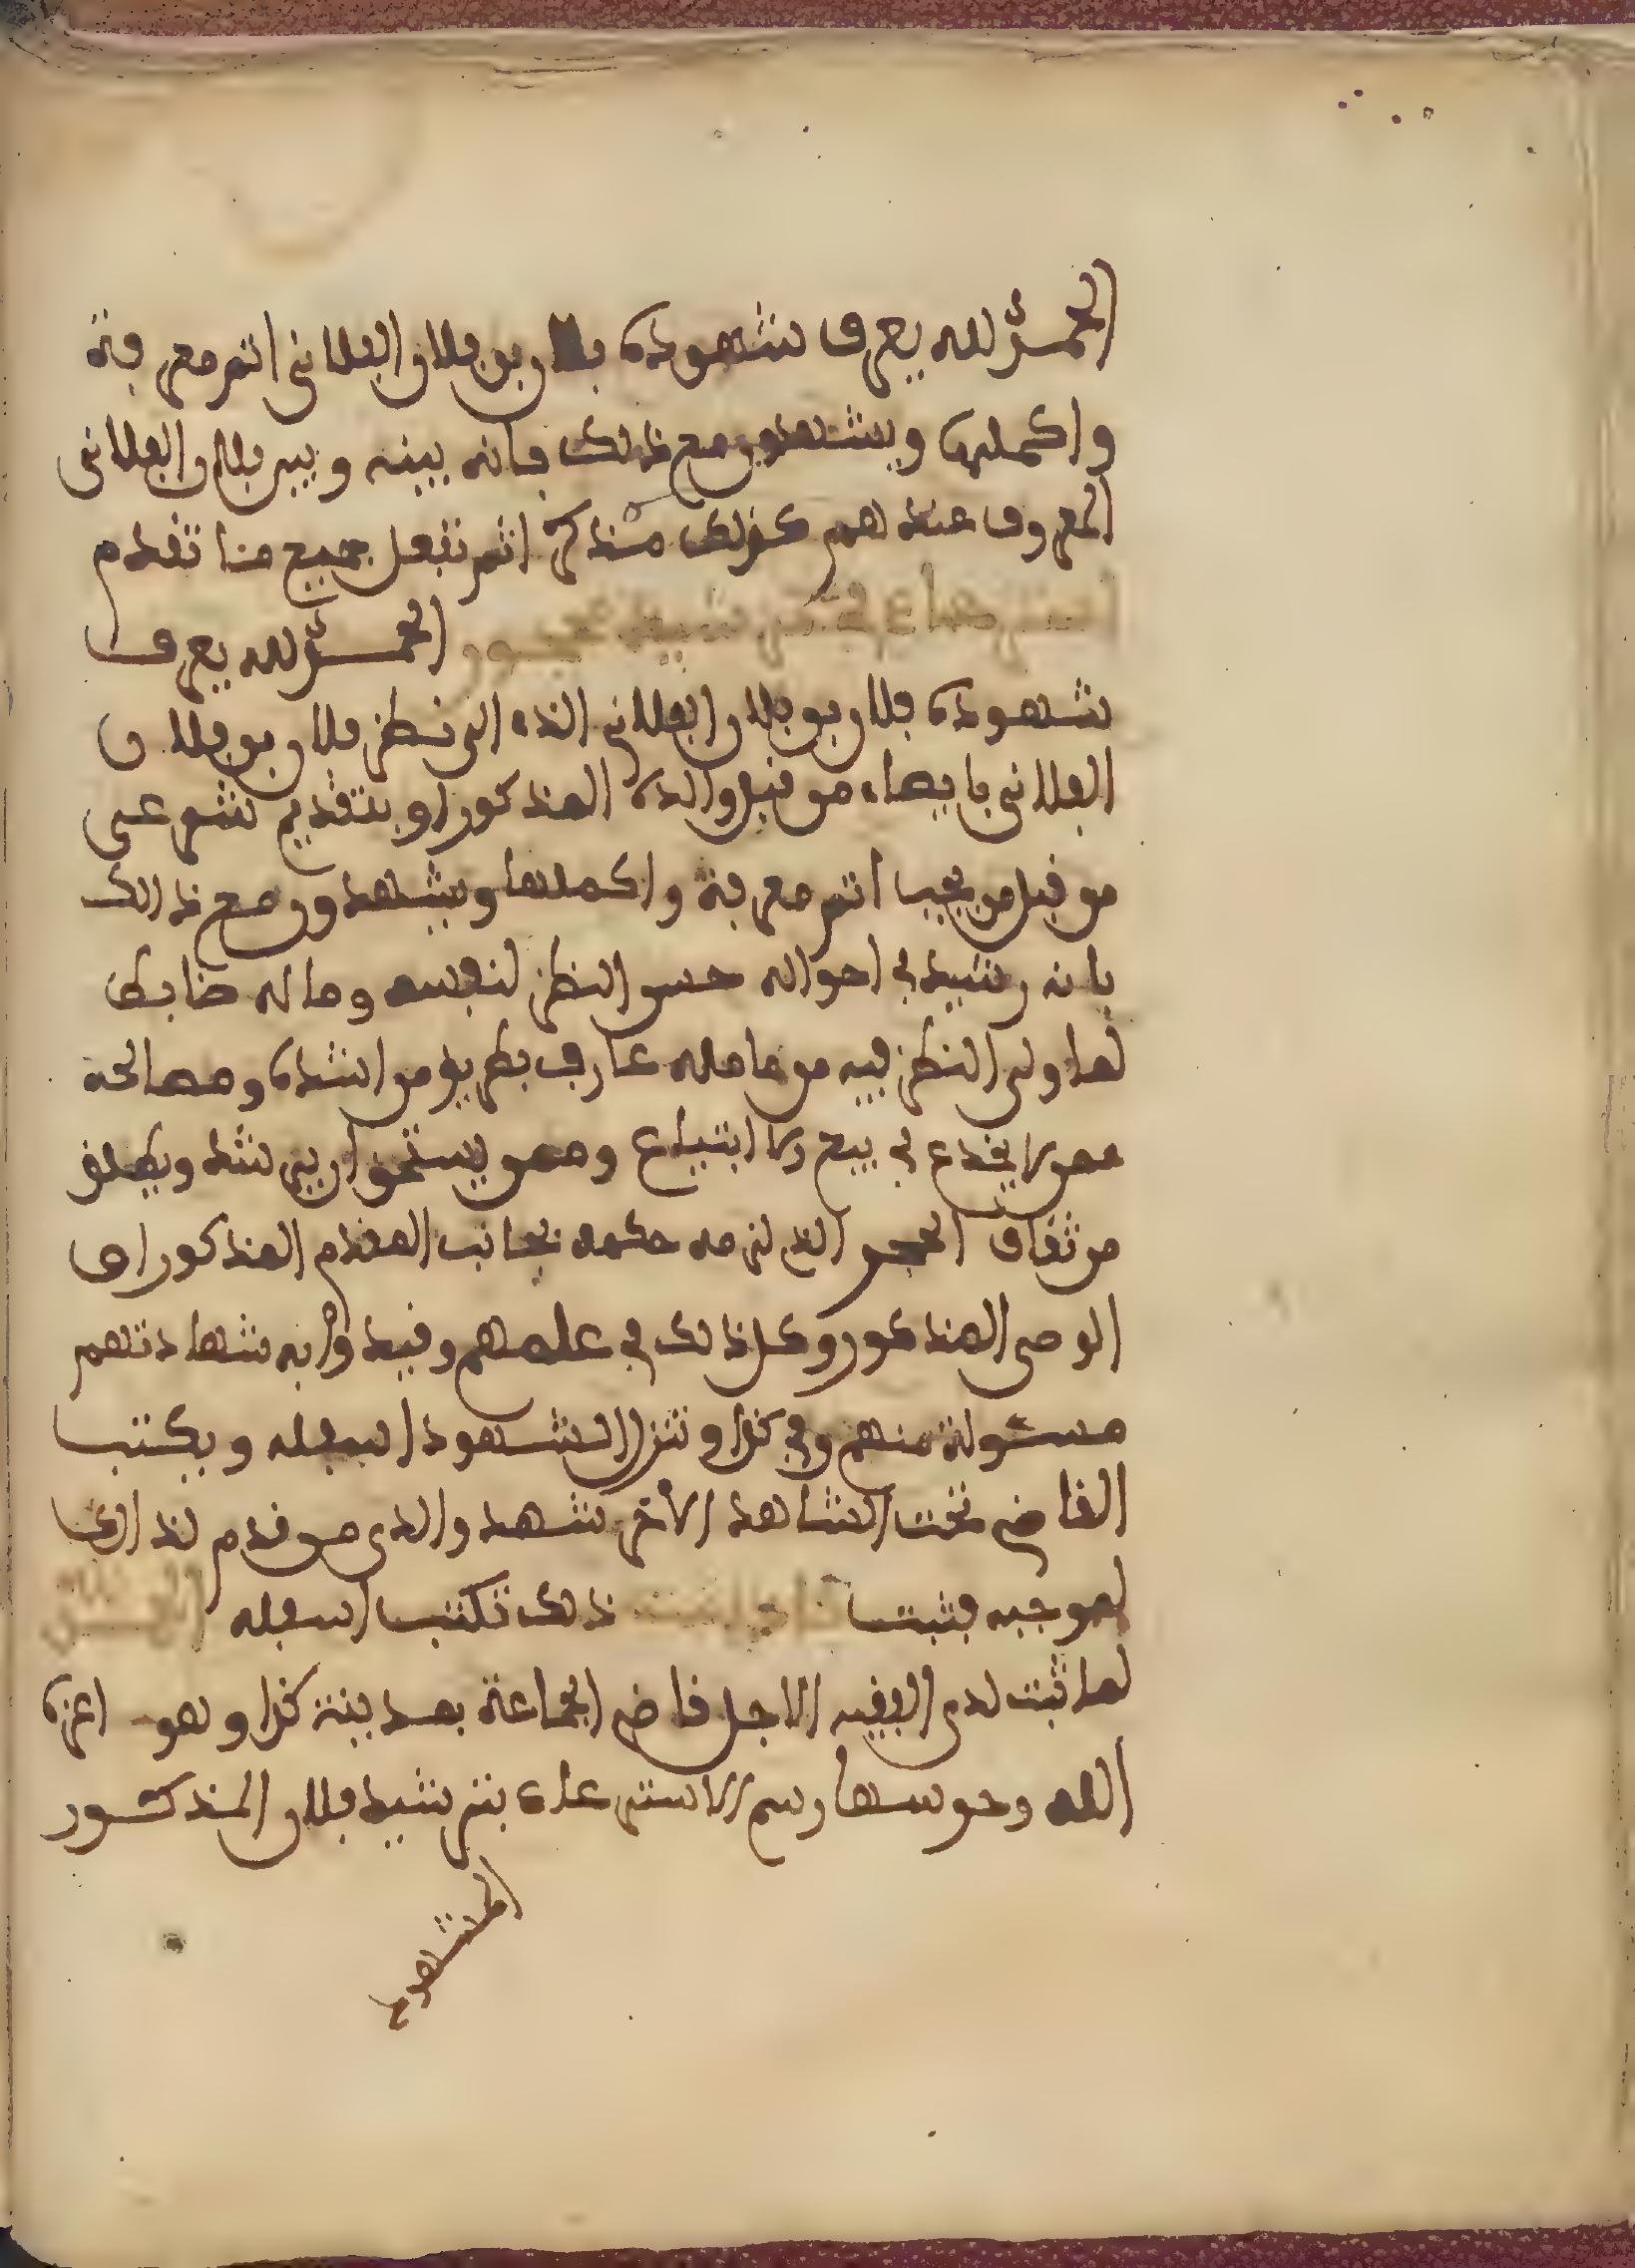 الحمد لله يعرف شهوده فلان بن فلان الفلاني اتم معرفة
واكملها ويشهدون مع ذلك بانه بينه وبين فلان الفلاني
المعروف عندهم كذلك منذ كم اثم تفعل جميع ما تقدم
استرعاء في ترشيد محجور الحمد لله يعرف
شهوده فلان بن فلان الفلاني الذي الى نظر فلان بن فلان
الفلاني بايصاء من قبل والده المذكور او بتقديم شرعي
من قبل من يجب اتم معرفة واكملها ويشهدون مع ذالك
بانه رشيد في احواله حسن النظر لنفسه وماله ضابط
لما ولي النظر فيه من ماله عارف بطريق من اشده ومصالحه
ممن لا يخدع في بيع ولا ابتياع وممن يستحق ان يرشد ويطلق
من ثقاف الحجر الذي لزمه حكمه بجانب المقدم المذكور او
الوصي المذكور وكل ذالك في علمهم وقيد وا به شهادتهم
مسئولة منهم وفي كذا وتنزل الشهود اسفله ويكتب
القاضي تحت الشاهد الاخر شهد والدى من قدم لذالك
لموجبه فثبت فاذا ثبت ذلك تكتب اسفله
لما ثبت لدى الفقيه الاجل قاضي الجماعة بمدينة كذا وهو اعزه
الله وحرسها رسم الاسترعاء بترشيد فلان المذكور
المشهود